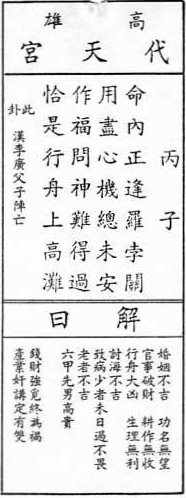 高雄
代天宮
丙子
命內正逢羅孛關
用盡心機總未安
作福問神難得過
恰是行舟上高灘
此卦
漢李廣父子陣亡
解曰
婚姻不吉 功名無望
官事破財 耕作無收
行舟大凶 生理無利
討海不吉
致病少者未日過不畏
老者不吉
六甲先男高貴
錢財強覓終為禍
產業奸講定有變